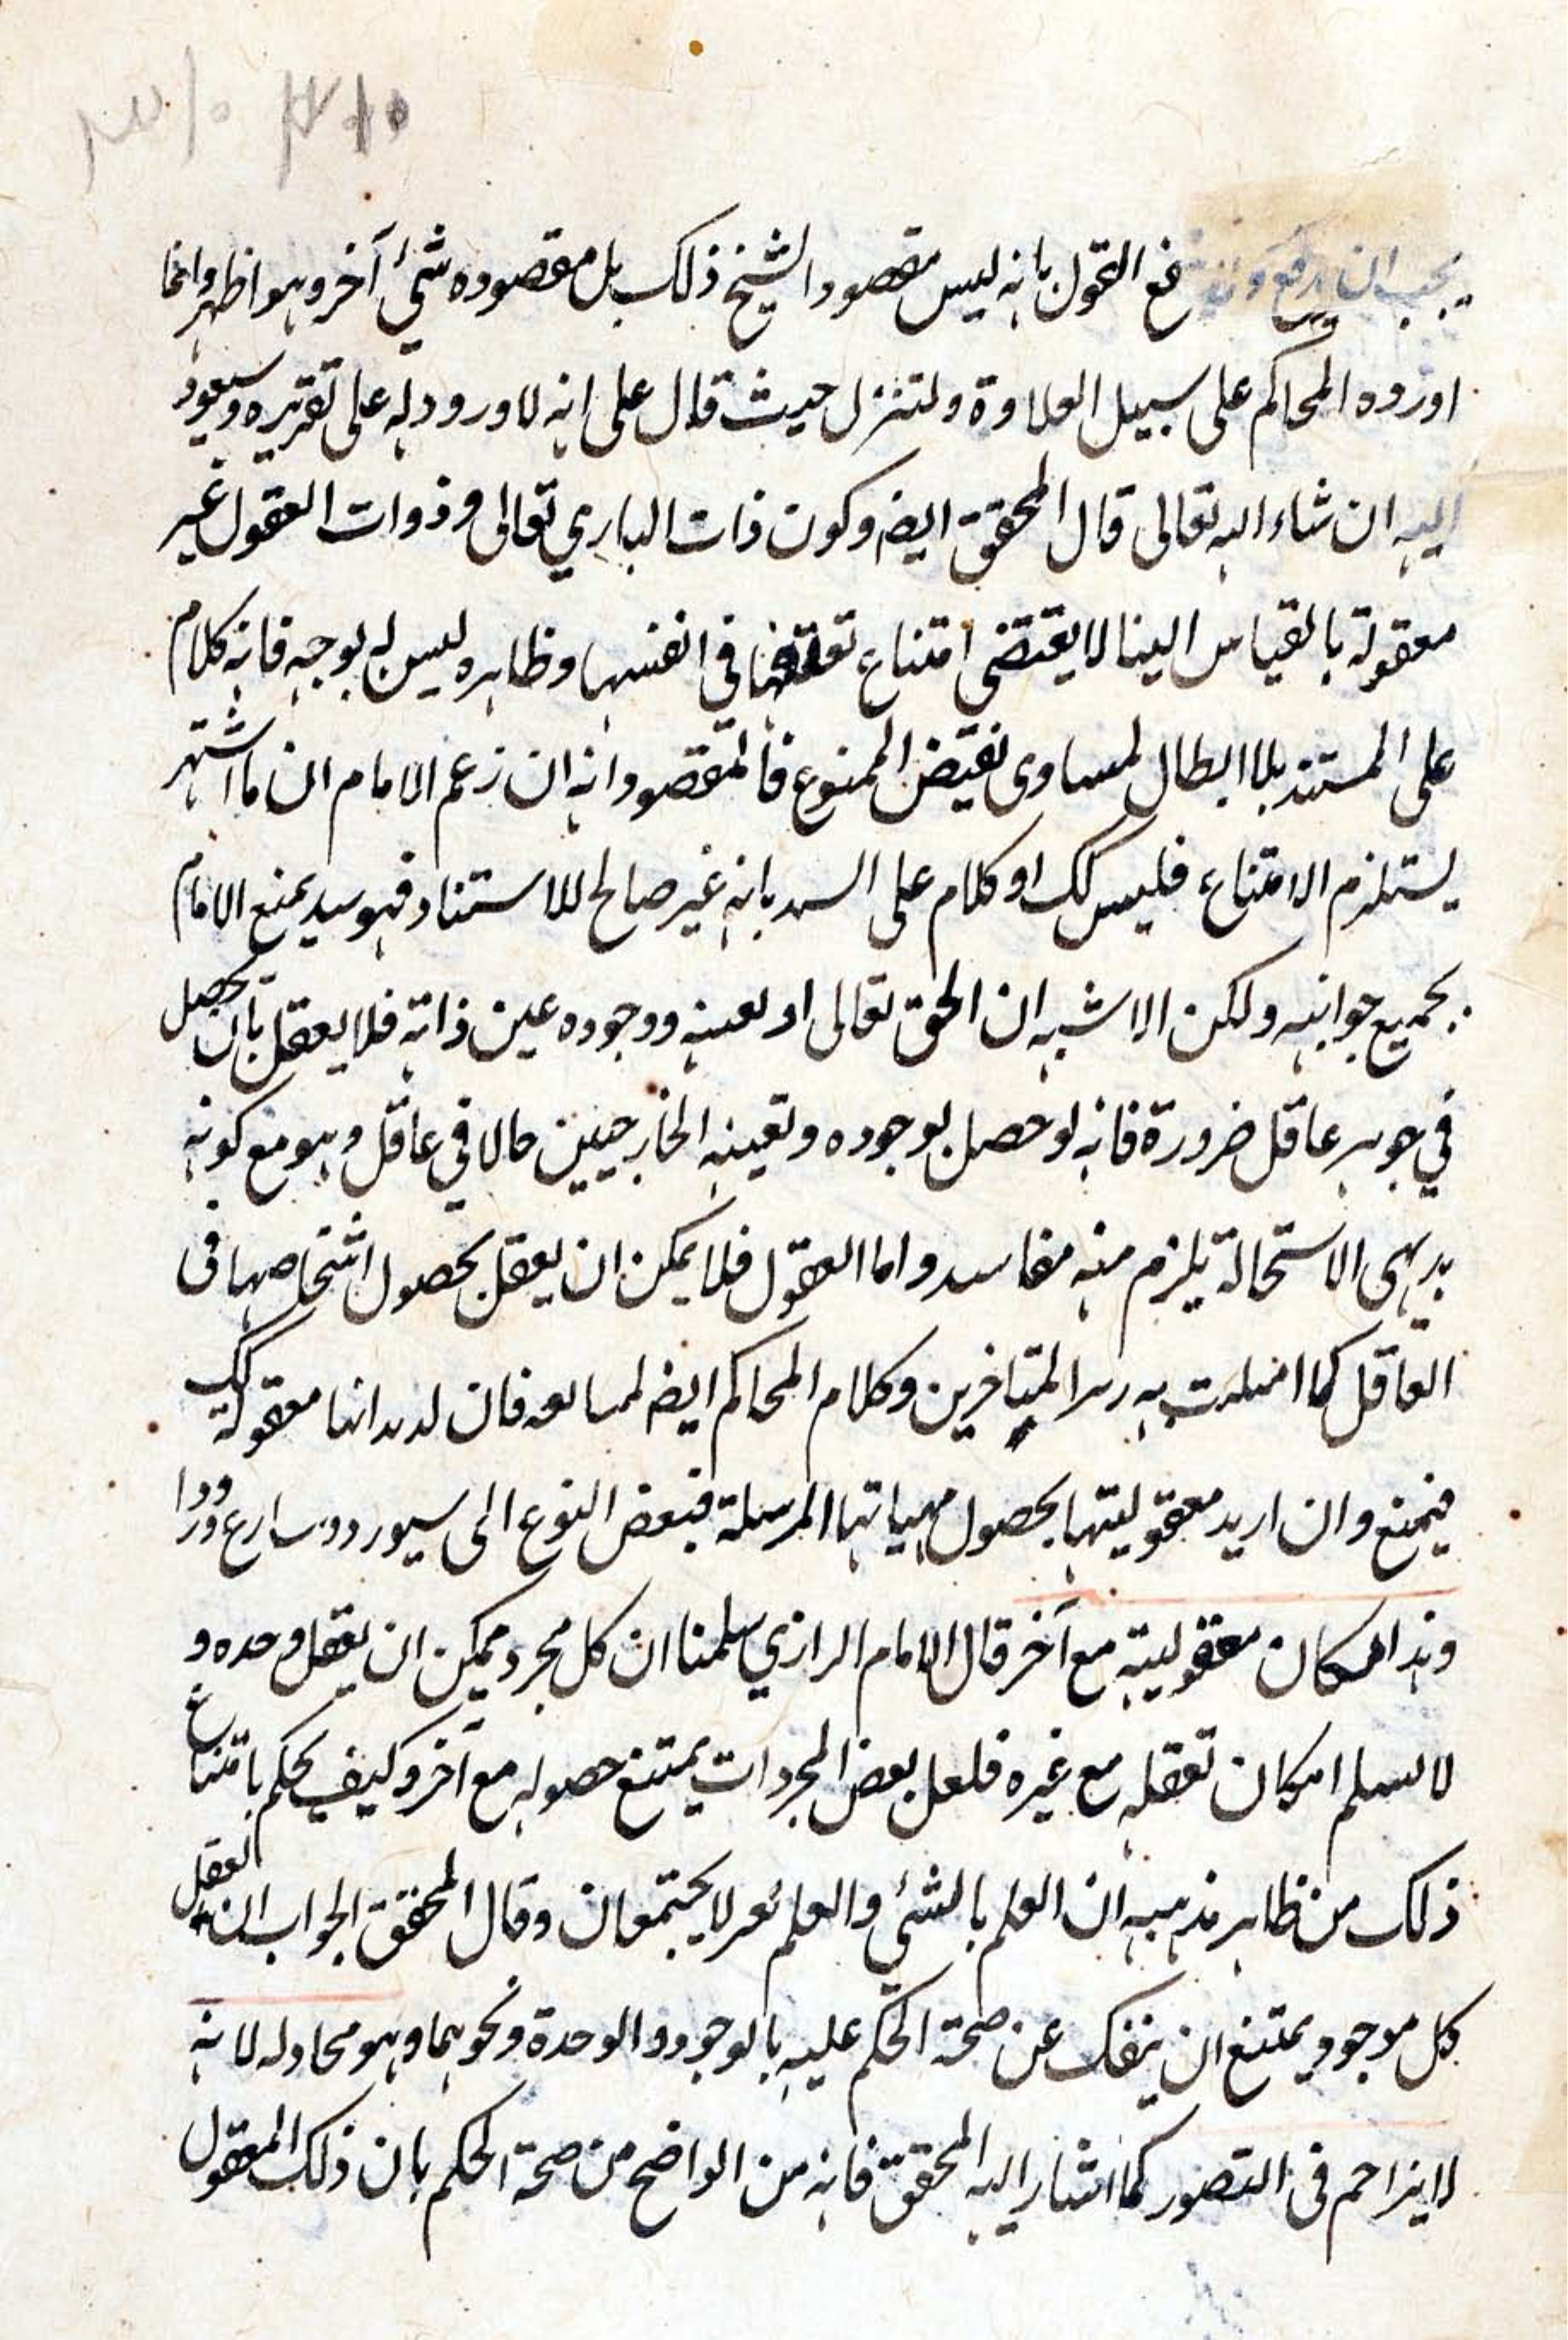 يجب ان يدفع القول بانه ليس مقصود الشيخ ذلك بل مقصوده شئ آخر وهو اظهر وانما
اورده المحاكم على سبيل العلاوة ولتنزل حيث قال على انه لا ورود له على تقريره وسيعود
اليه ان شاء الله تعالى قال المحقق ايضا وكون ذات الباري تعالى وذوات العقول غير
معقولة بالقياس الينا لا يقتضى امتناع تعقلها فى انفسها وظاهره ليس له بوجه فانه كلام
على المستند بلا ابطال لمساوى نقيض الممنوع فالمقصود انه ان زعم الامام ان ما اشتهر
يستلزم الامتناع فليس كك او كلام على السند بانه غير صالح للاستناد فهو سيد يمنع الامام
بجميع جوانبه ولكن الاشبه ان الحق تعالى او تعينه ووجوده عين ذاته فلا يعقل بان يحصل
في جوهر عاقل ضرورة فانه لو حصل بوجوده وتعينه الخارجيين حالا في عاقل وهو مع كونه
بديهى الاستحالة يلزم منه مفاسد واما العقول فلا يمكن ان يعقل بحصول اشخاصها فى
العاقل كما به المتاخرين وكلام المحاكم ايضا فان انها معقولة كك
فيمنع وان اريد معقوليتها بحصول مهياتها المرسلة فبعض النوع الى
وهذا امكان معقوليته مع آخر قال الامام الرازي سلمنا ان كل مجرد يمكن ان يعقل وحده و
لا نسلم امكان تعقله مع غيره فلعل بعض المجردات يمتنع حصوله مع آخر وكيف يحكم بامتناع
ذلك من ظاهر مذهبه ان العلم بالشئ والعلم بغيره لا يجتمعان وقال المحقق الجواب ان تعقل
كل موجود يمتنع ان ينفك عن صحة الحكم عليه بالوجود والوحدة ونحوهما وهو محاوله لانه
لا يزاحم فى التصور كما اشار اليه المحقق فانه من الواضح من صحة الحكم بان ذلك المعقول